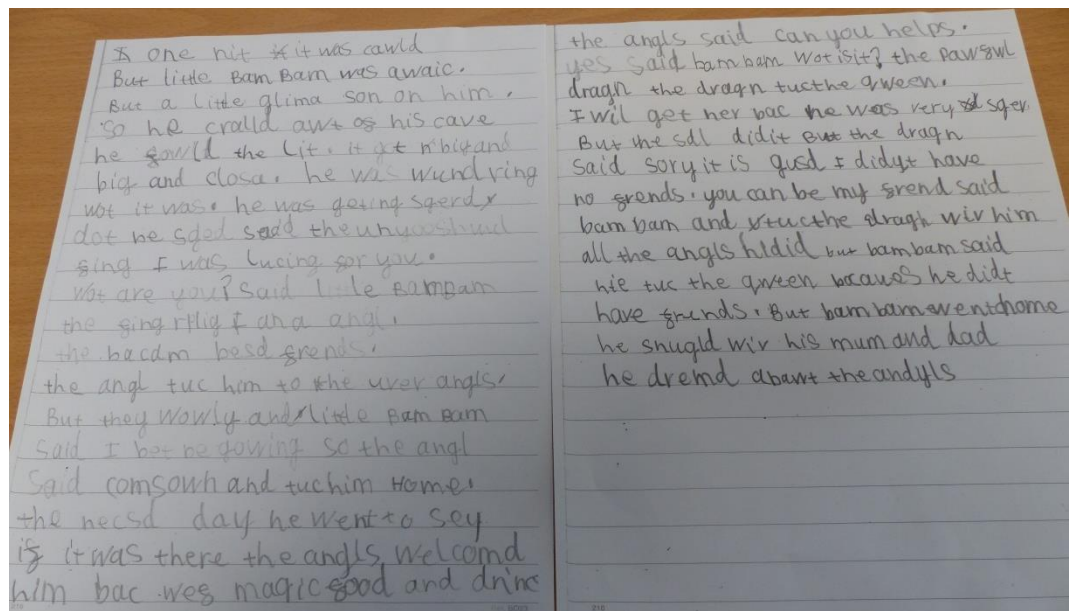 one nit it was cawld
But little Bam Bam was awaic.
But a little glima son on him.
So he cralld awt of his cave
he the Lit. it get and
big and closa. he was wundring
wot it was. he was geting sgerd
dot he said
sing I was lucing for you.
Wot are you? Said little BamBam
the sing I am a angl.
the bacam besd frends.
the angl tuc him to the uver angls.
But they wowly and little Bam Bam
Said I bet be gowing so the angl
Said and tuc him Home.
the necsd day he went to sey
if it was there the angls welcomd
him bac wef magic food and drinc
the angls said can you helps.
yes said bam bam wot is it? the pawfwl
dragn the dragn tuc the qween.
I wil get her bac he was very sger
But he sdl did it But the dragn
Said sory it is gusd I didyt have
no frends. you can be my frend said
bam bam and tuc the dragn wiv him
all the angls hidid but bam bam said
hie tuc the qween becaues he didt
have frends. But bam bam went home
he snugld wiv his mum and dad
he dremd abawt the andyls